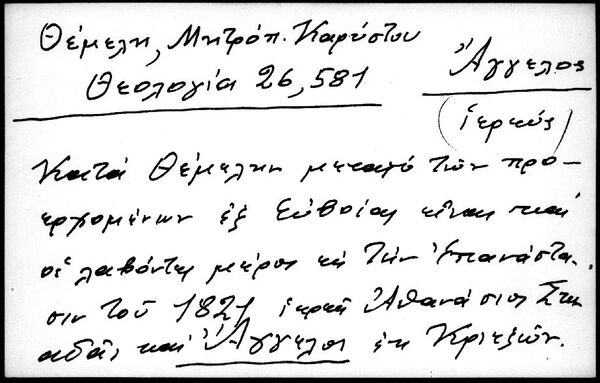 Θέμελη, Μητρόπ. Καρύστου
Θεολογία 26, 581
Ἄγγελος
(ἱερεύς)
Κατά Θέμελην μεταξύ τῶν προ-
ερχομένων ἐξ Εὐβοίας εἶναι καί
οἱ λαβόντες μέρος εἰς τήν Ἐπανάστα-
σιν τοῦ 1821 ἱερεῖς Ἀθανάσιος
καί Ἄγγελος ἐκ Κριεζῶν.